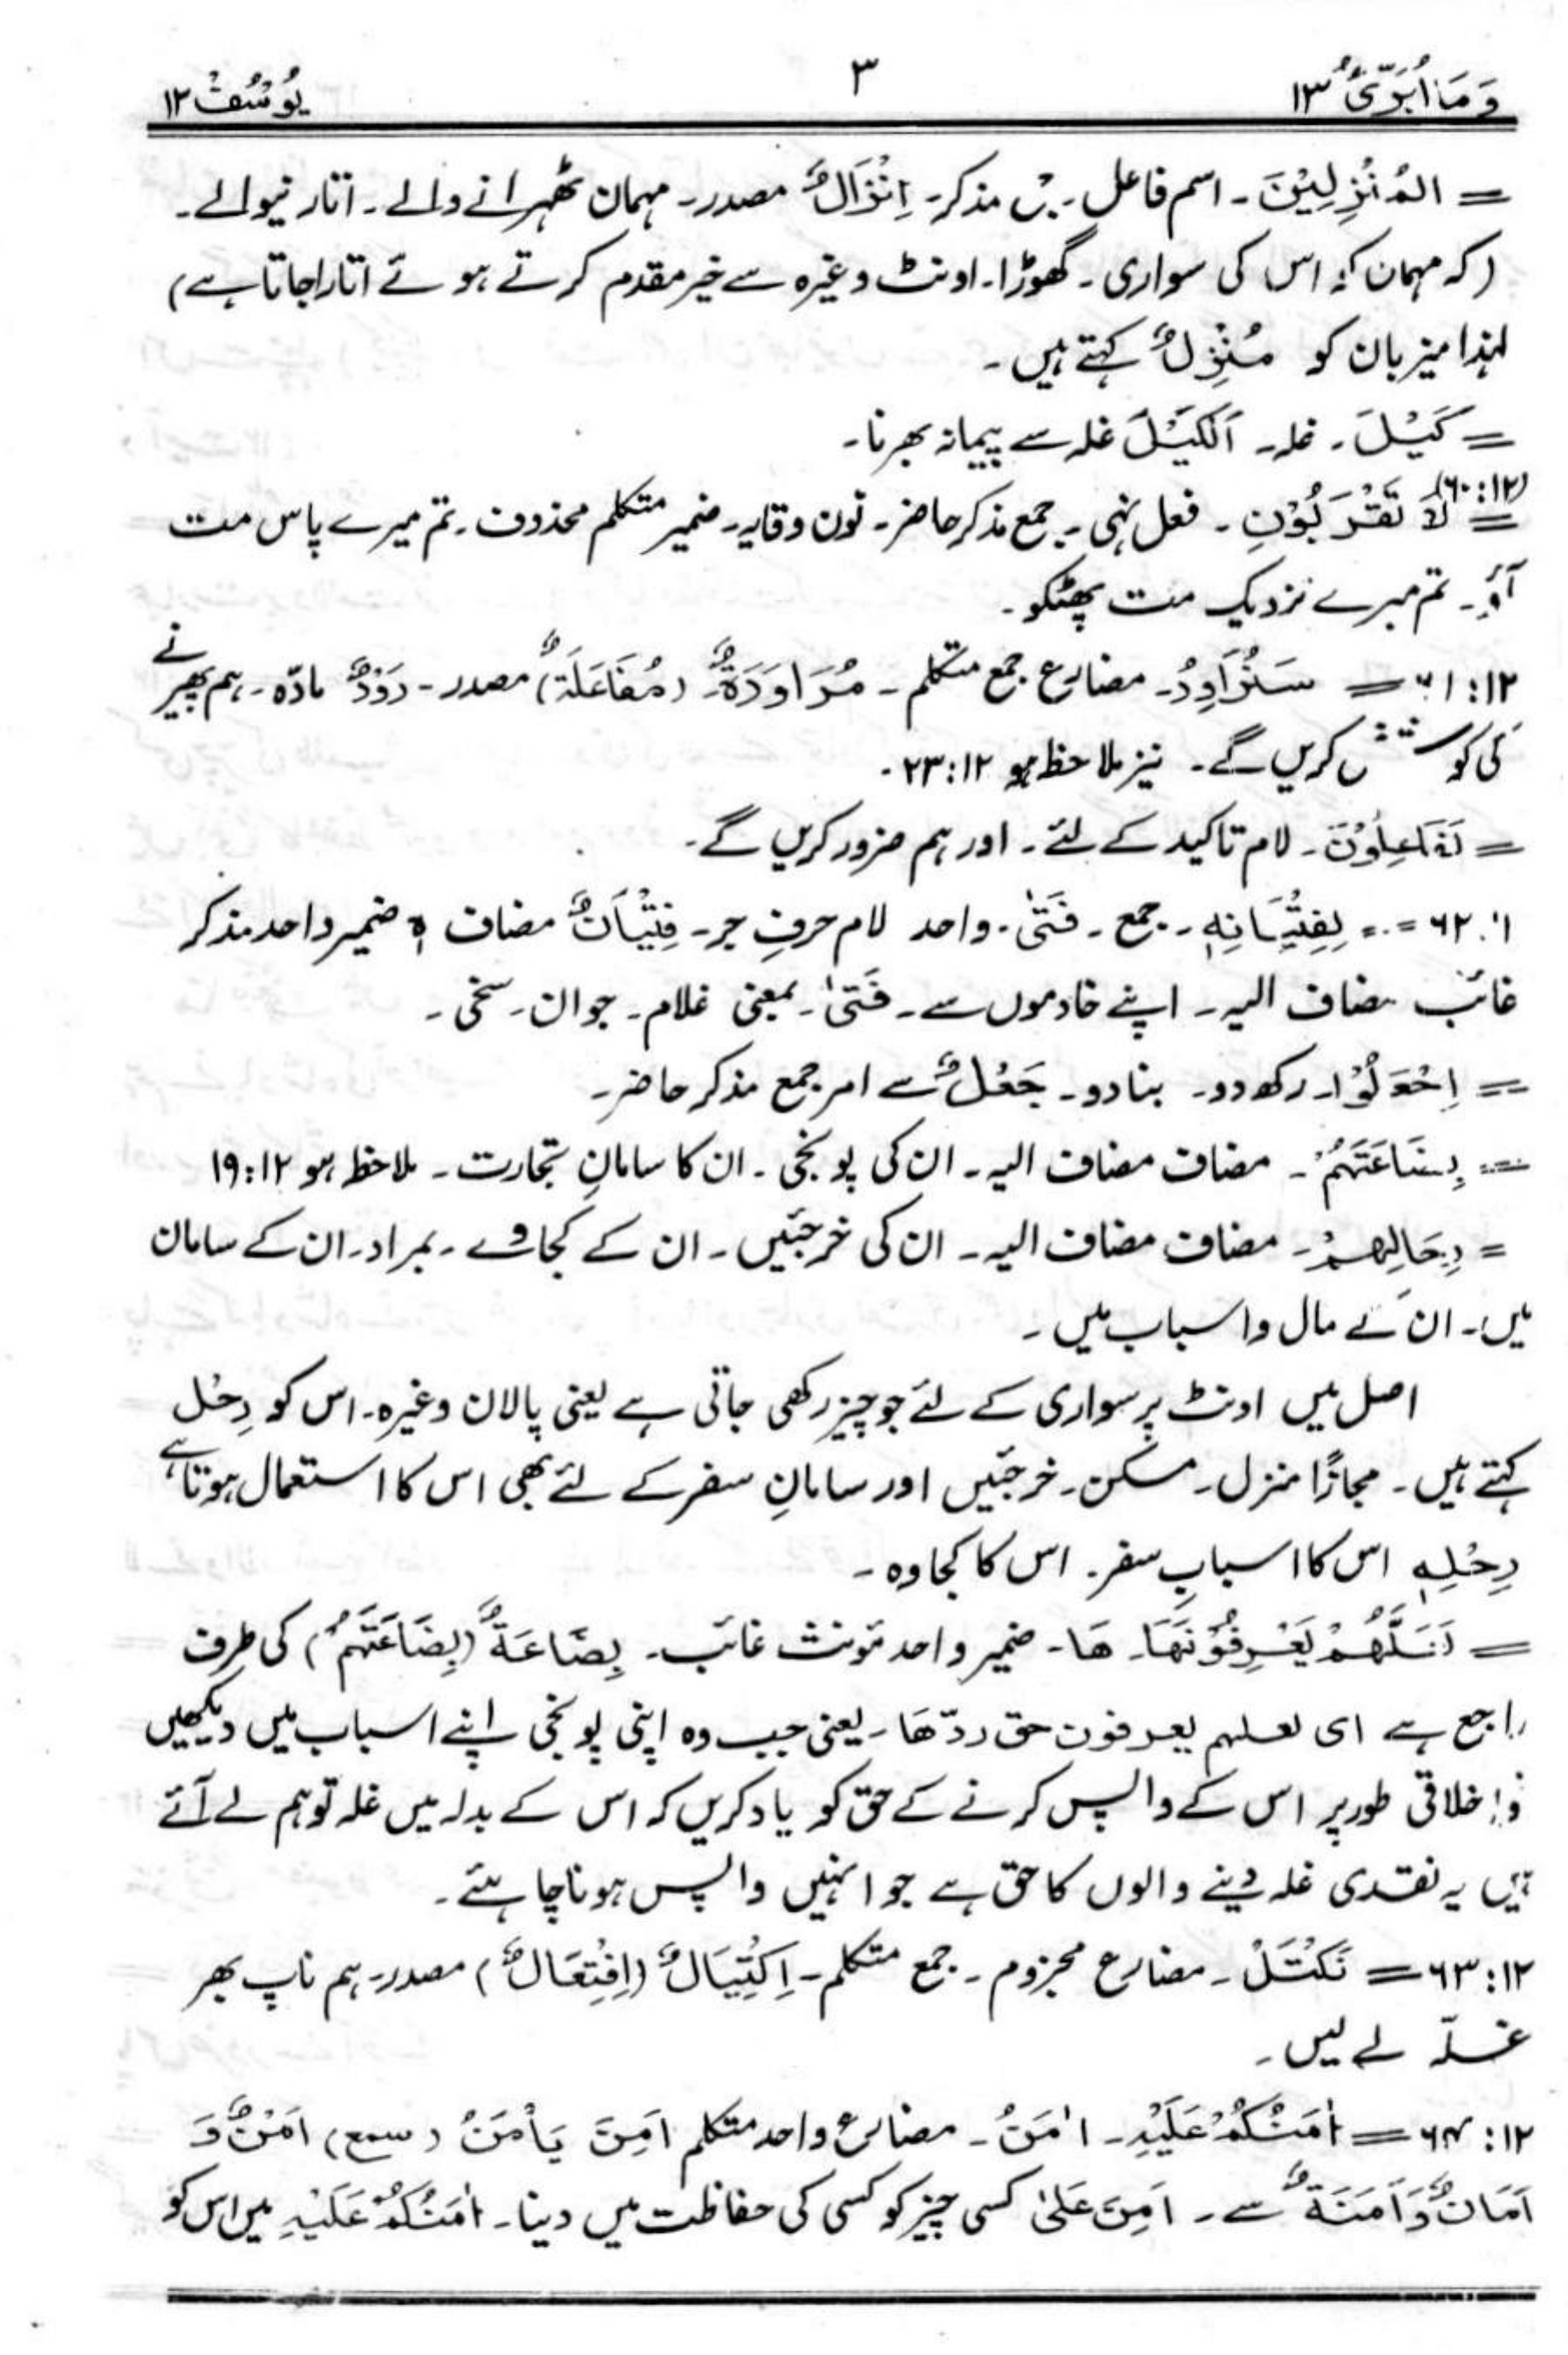 وَمَا اُبَرِّئُ ۱۳
۳
یُوْسُفْ ۱۲
= المُنْزِلِیْنَ۔ اسم فاعل۔ مذکر۔ اِنْزَالٌ مصدر۔ مہمان ٹھہرانے والے۔ اتارنیوالے۔
(کہ مہمان کو اس کی سواری۔ گھوڑا۔ اونٹ وغیرہ سے خیر مقدم کرتے ہوئے اتارا جاتا ہے)
لہذا میزبان کو مُنْزِلٌ کہتے ہیں۔
= کَیْلَ۔ غلہ۔ اَلْکَیْلَ غلہ سے پیمانہ بھرنا۔
(۶۰:۱۲)
= لَا تَقْرَبُوْنِ۔ فعل نہی۔ جمع مذکر حاضر۔ نون وقایہ۔ ضمیر متکلم محذوف۔ تم میرے پاس مت
آؤ۔ تم میرے نزدیک مت پھٹکو۔
۶۱:۱۲ = سَنُرَاوِدُ۔ مضارع جمع متکلم۔ مُرَاوَدَۃٌ۔ (مُفَاعَلَۃٌ) مصدر۔ رَوْدٌ مادّہ۔ ہم پھیرنے
کی کوشش کریں گے۔ نیز ملاحظہ ہو ۲۳:۱۲۔
= لَفَاعِلُوْنَ۔ لام تاکید کے لئے۔ اور ہم ضرور کریں گے۔
۶۲ = لِفِتْیَانِہٖ۔ جمع۔ فَتًی۔ واحد لام حرفِ جر۔ فِتْیَانٌ مضاف ہٖ ضمیر واحد مذکر
غائب مضاف الیہ۔ اپنے خادموں سے۔ فَتًی۔ بمعنی غلام۔ جوان۔ سخی۔
= اِجْعَلُوْا۔ رکھ دو۔ بنا دو۔ جَعْلٌ سے امر جمع مذکر حاضر۔
= بِضَاعَتَہُمْ۔ مضاف مضاف الیہ۔ ان کی پونجی۔ ان کا سامانِ تجارت۔ ملاحظہ ہو ۱۹:۱۲
= رِحَالِہِمْ۔ مضاف مضاف الیہ۔ ان کی خرجئیں۔ ان کے کجاوے۔ بمراد۔ ان کے سامان
میں۔ ان کے مال و اسباب میں۔
اصل میں اونٹ پر سواری کے لئے جو چیز رکھی جاتی ہے یعنی پالان وغیرہ۔ اس کو رِحْل
کہتے ہیں۔ مجازًا منزل۔ مسکن۔ خرجئیں اور سامانِ سفر کے لئے بھی اس کا استعمال ہوتا ہے
رِحْلِہٖ اس کا اسبابِ سفر۔ اس کا کجاوہ۔
= لَعَلَّھُمْ یَعْرِفُوْنَھَا۔ ھَا۔ ضمیر واحد مؤنث غائب۔ بِضَاعَۃٌ (بِضَاعَتَہُمْ) کی طرف
راجع ہے ای لعلہم یعرفون حق ردّھَا۔ یعنی جب وہ اپنی پونجی اپنے اسباب میں دیکھیں
تو اخلاقی طور پر اس کے واپس کرنے کے حق کو یاد کریں کہ اس کے بدلہ میں غلہ تو ہم لے آئے
ہیں یہ نقدی غلہ دینے والوں کا حق ہے جو انہیں واپس ہونا چاہئے۔
۶۳:۱۲ = نَکْتَلْ۔ مضارع مجزوم۔ جمع متکلم۔ اِکْتِیَالٌ (اِفْتِعَالٌ) مصدر۔ ہم ناپ بھر
غلّہ لے لیں۔
۶۴:۱۲ = اٰمَنُکُمْ عَلَیْہِ۔ اٰمَنُ۔ مضارع واحد متکلم اَمِنَ یَاْمَنُ (سمع) اَمْنٌ وَ
اَمَانٌ وَاَمَنَۃٌ سے۔ اَمِنَ عَلیٰ کسی چیز کو کسی کی حفاظت میں دینا۔ اٰمَنُکُمْ عَلَیْہِ میں اس کو